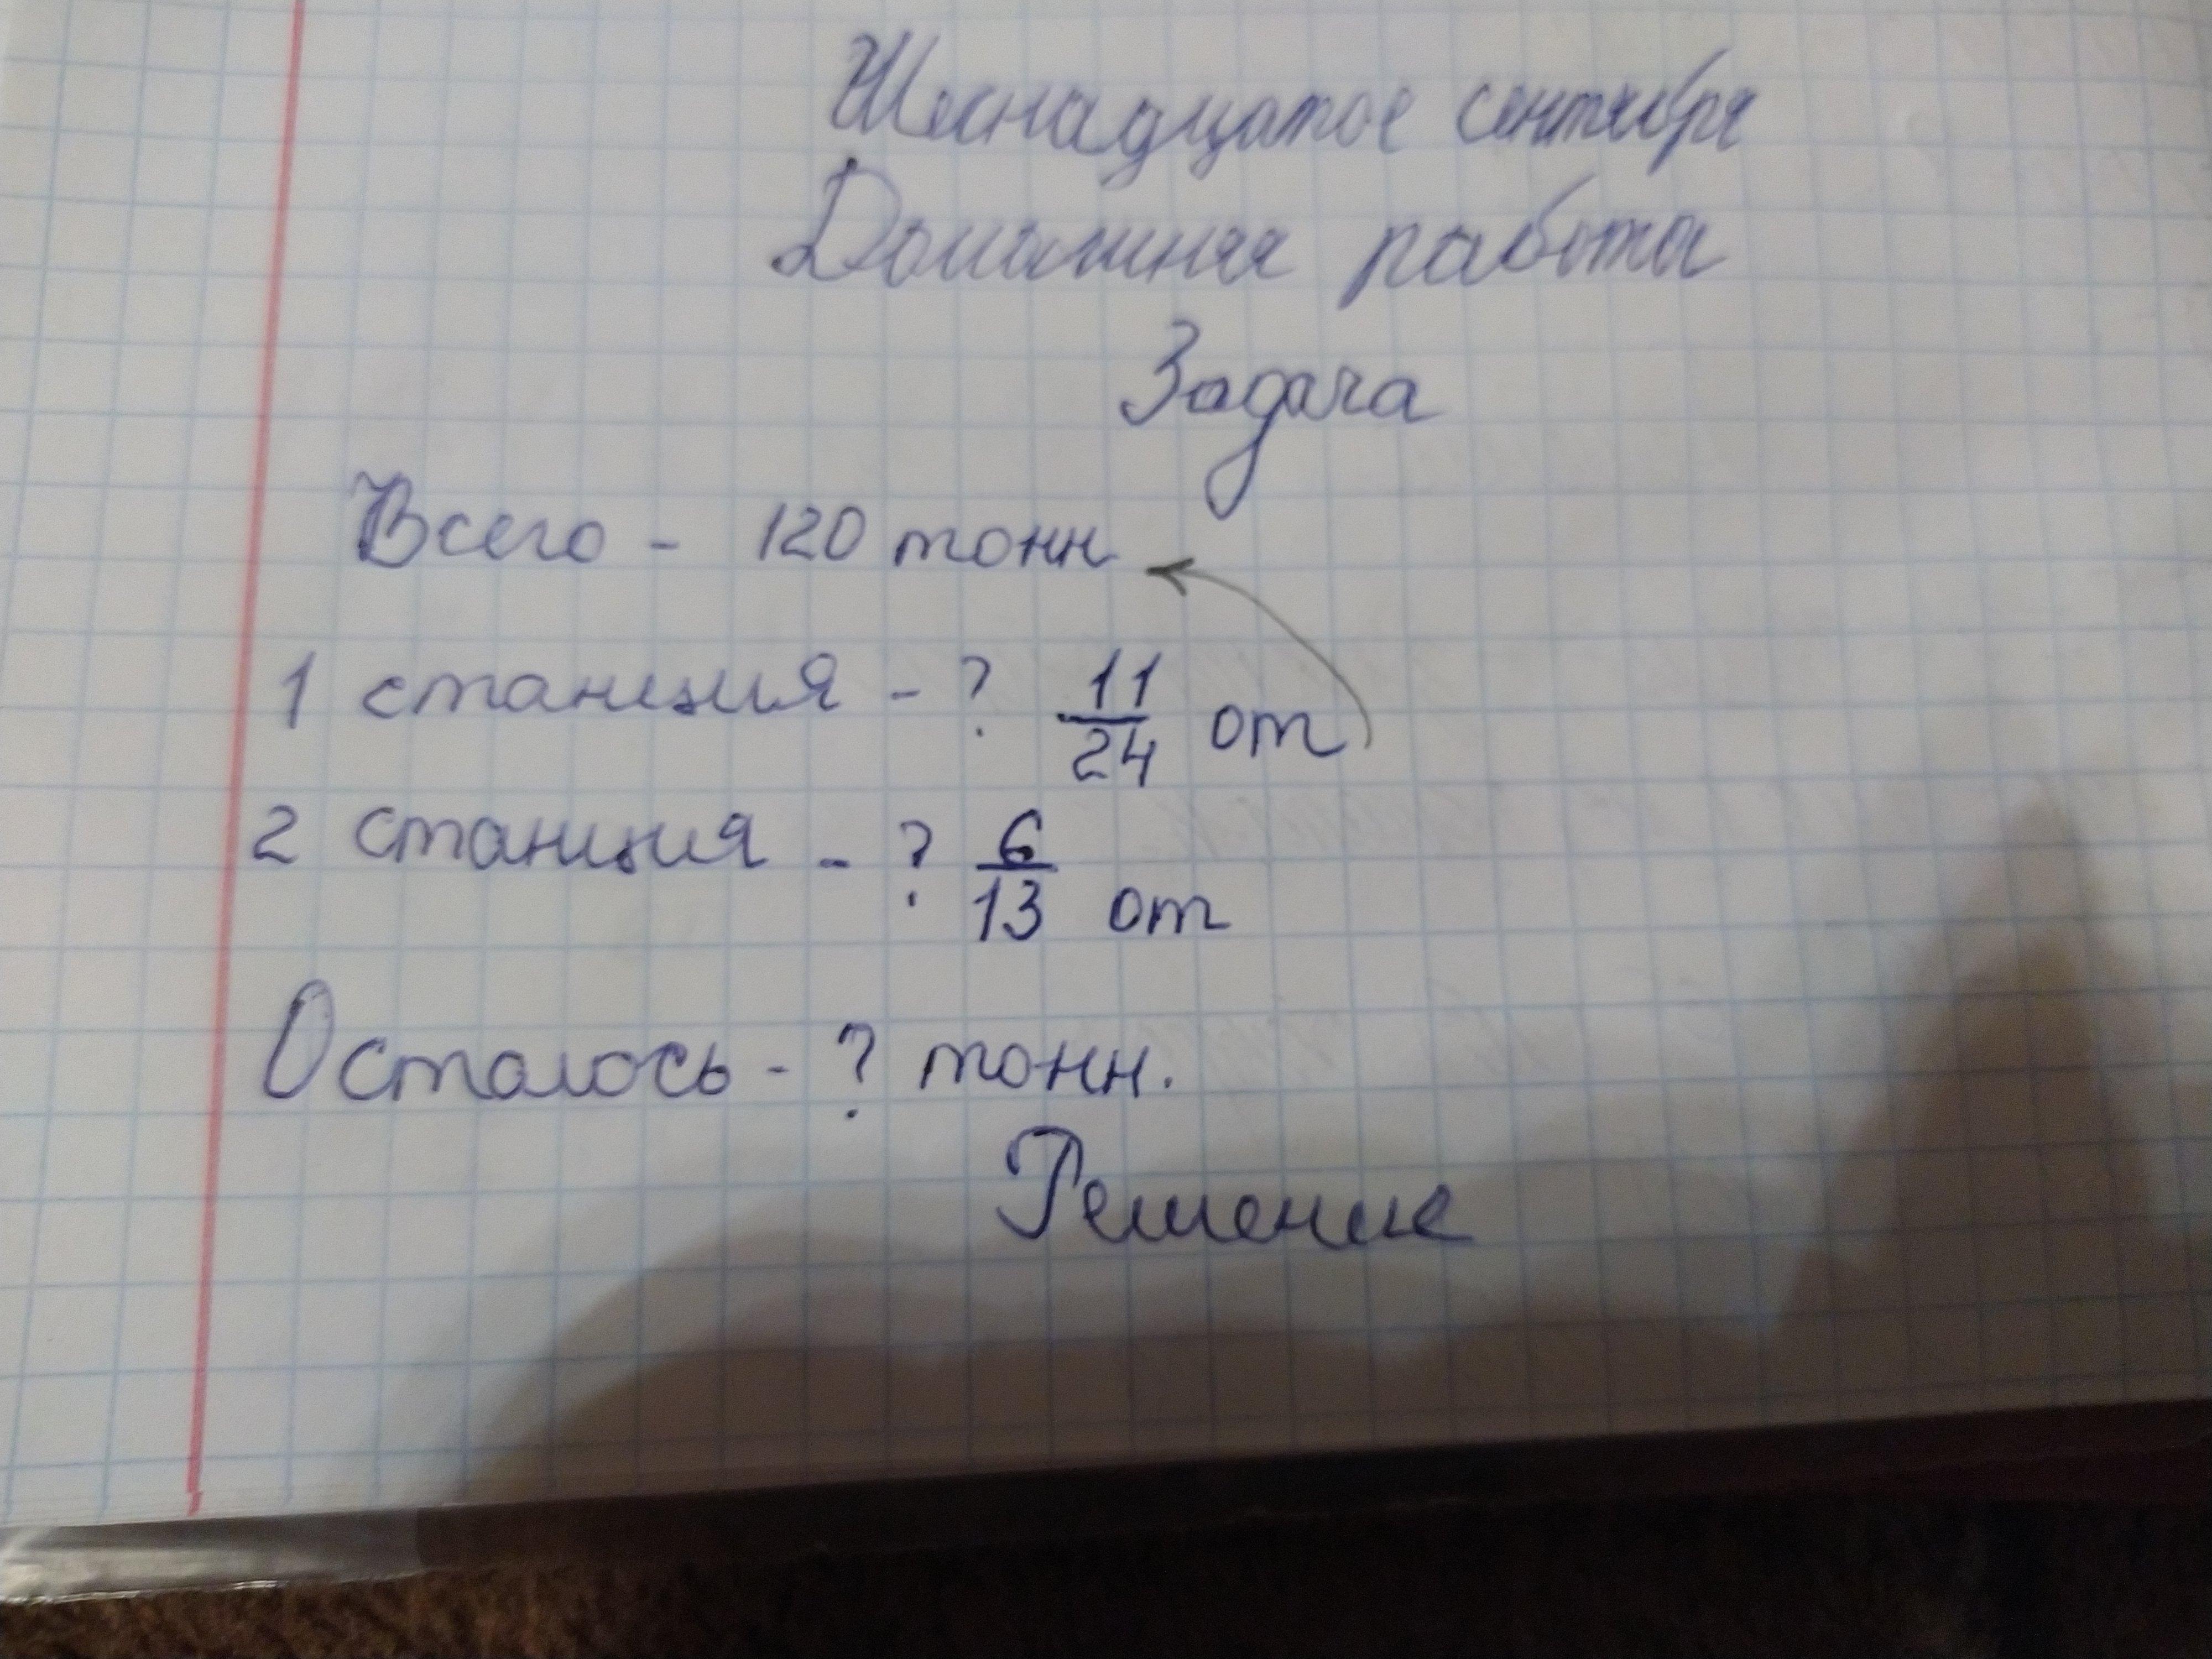 Шеснадцатое сентября
Домашняя работа
Задача
Всего - 120 тонн
1 станция - ? 11/24 от
2 станция - ? 6/13 от
Осталось - ? тонн.
Решение